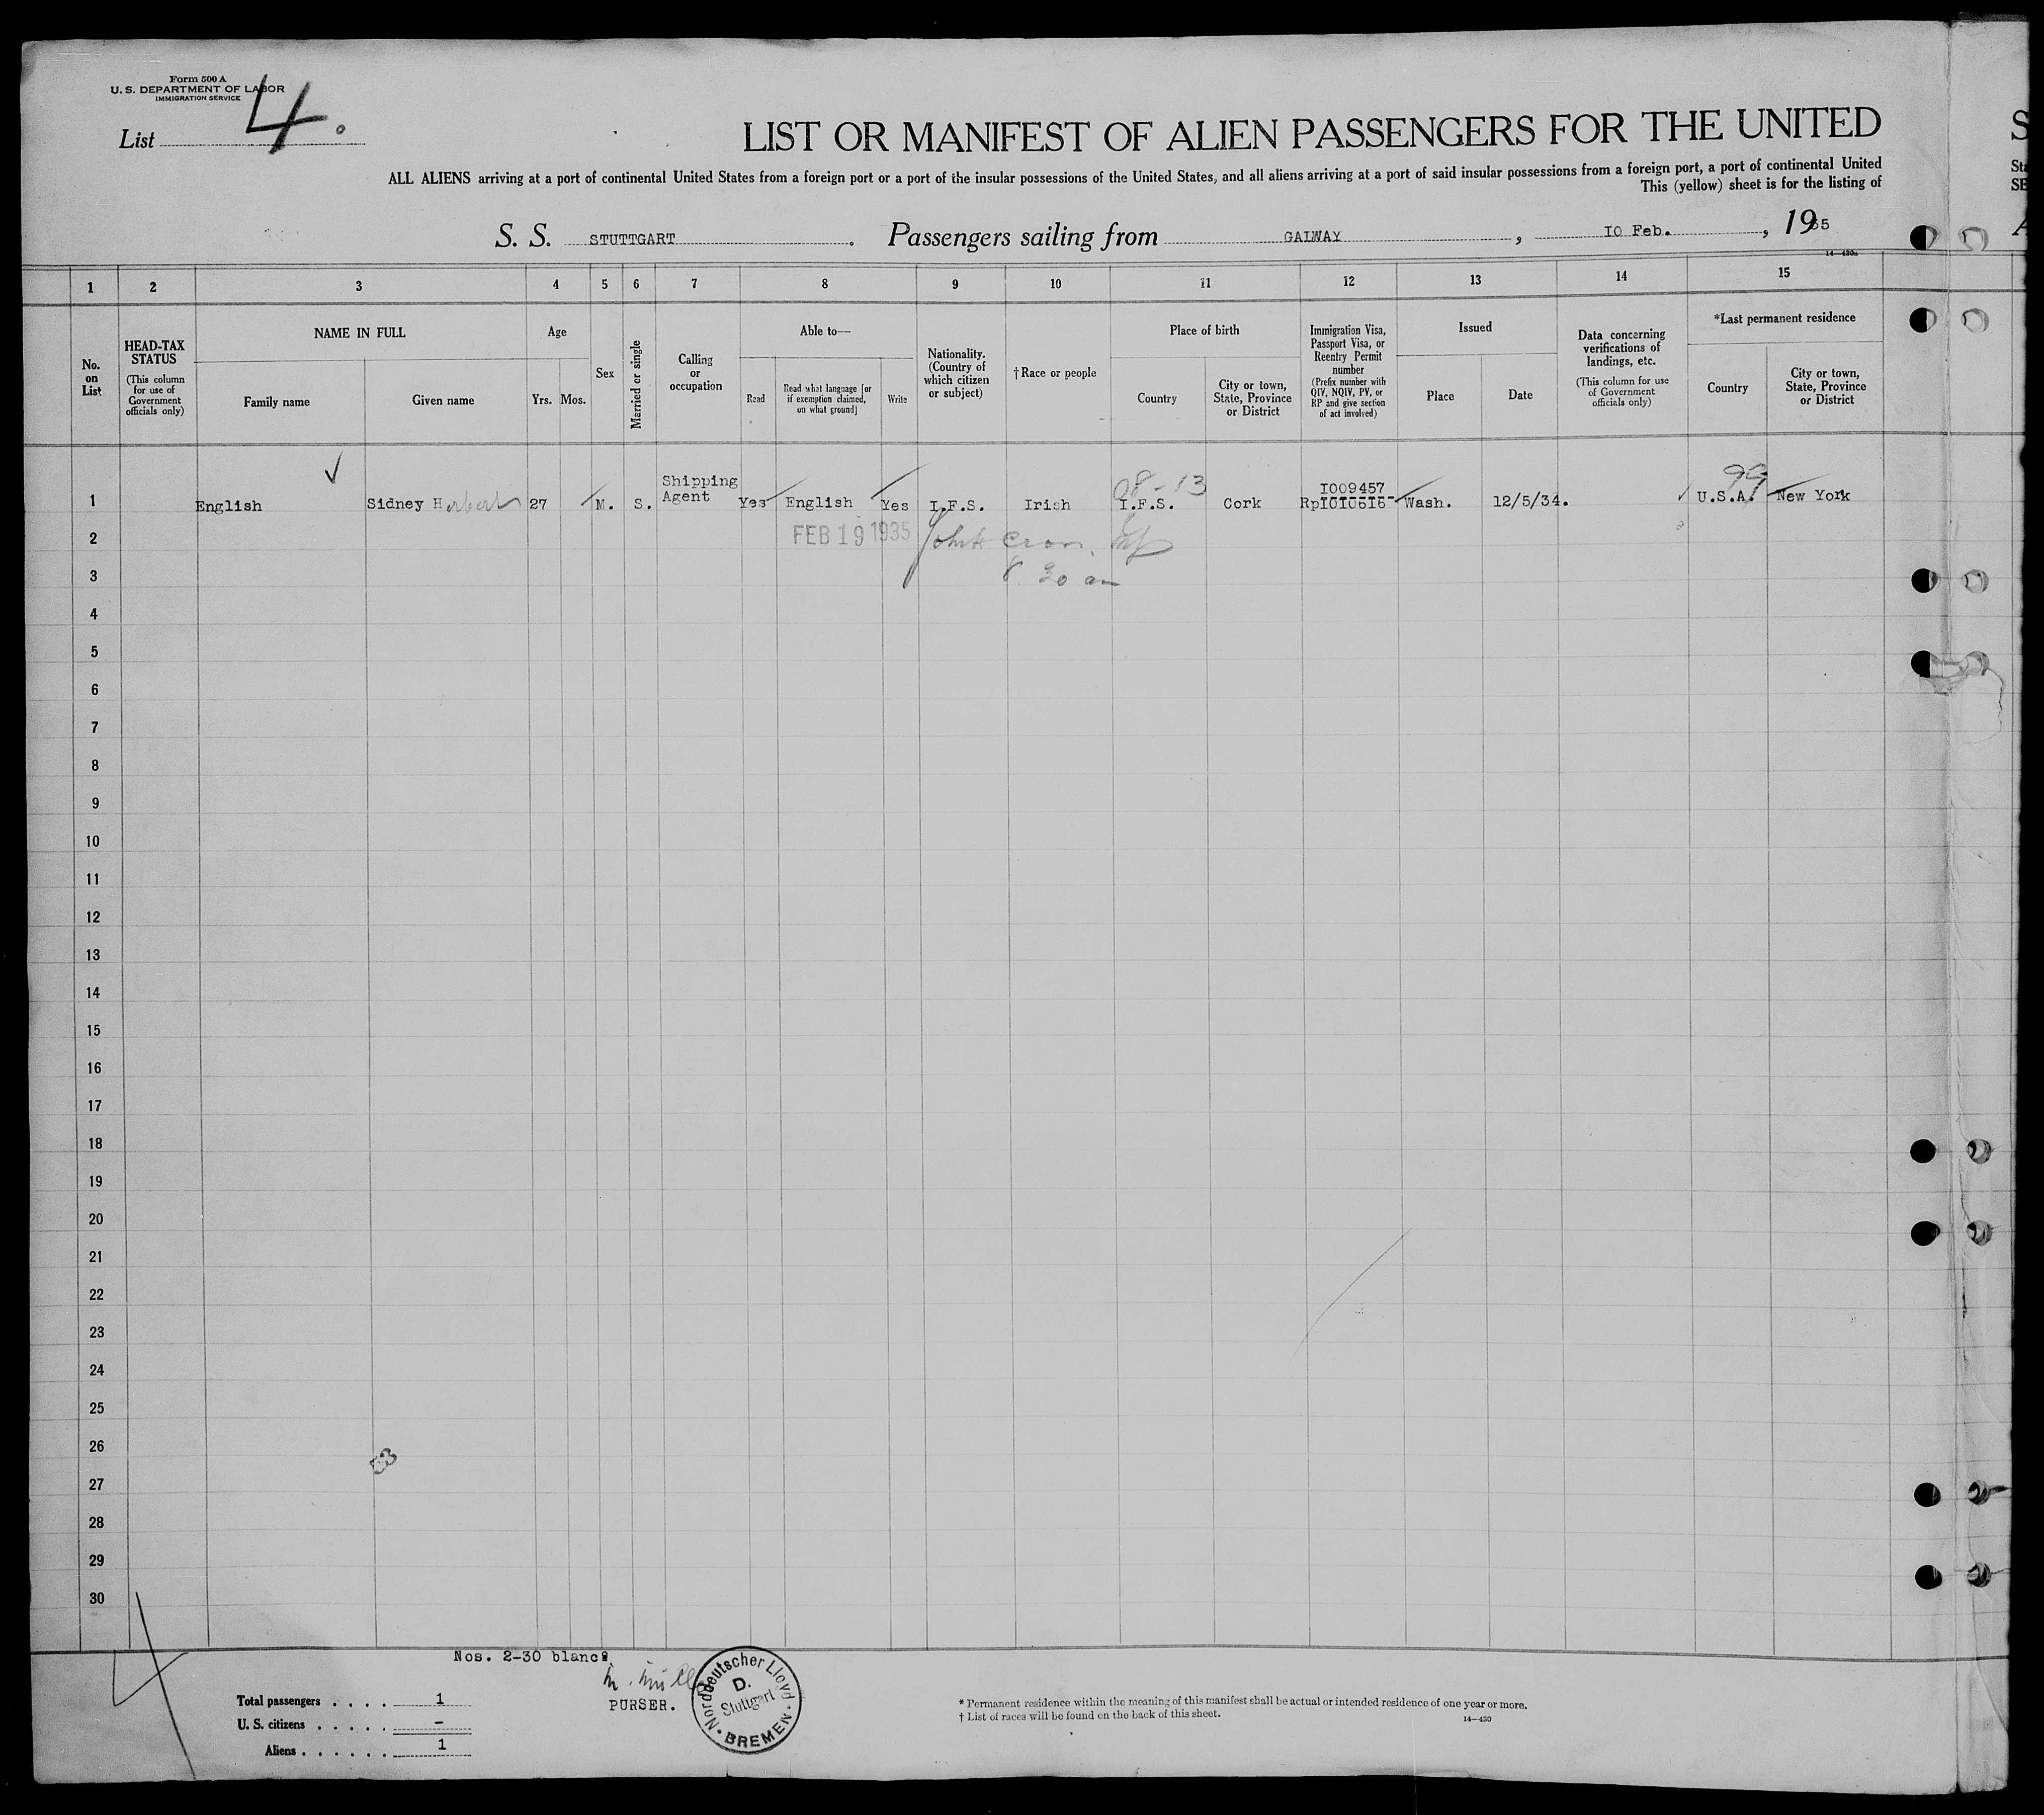 Form 500 A
U. S. DEPARTMENT OF LABOR
IMMIGRATION SERVICE
List 4.
LIST OR MANIFEST OF ALIEN PASSENGERS FOR THE UNITED
S
ALL ALIENS arriving at a port of continental United States from a foreign port or a port of the insular possessions of the United States, and all aliens arriving at a port of said insular possessions from a foreign port, a port of continental United
This (yellow) sheet is for the listing of
S. S. STUTTGART. Passengers sailing from GALWAY, 10 Feb., 1935
14—430a
1 2 3 4 5 6 7 8 9 10 11 12 13 14 15
No. on List
HEAD-TAX STATUS
(This column for use of Government officials only)
NAME IN FULL
Family name
Given name
Age
Yrs. Mos.
Sex
Married or single
Calling or occupation
Able to—
Read
Read what language [or if exemption claimed, on what ground]
Write
Nationality. (Country of which citizen or subject)
†Race or people
Place of birth
Country
City or town, State, Province or District
Immigration Visa, Passport Visa, or Reentry Permit number
(Prefix number with QIV, NQIV, PV, or RP and give section of act involved)
Issued
Place
Date
Data concerning verifications of landings, etc.
(This column for use of Government officials only)
*Last permanent residence
Country
City or town, State, Province or District
98-13
99
I009457
1 English Sidney Herbert 27 M. S. Shipping Agent Yes English Yes I.F.S. Irish I.F.S. Cork RpI0I0616 Wash. 12/5/34. U.S.A. New York
2 FEB 19 1935
3 8 30 am
4
5
6
7
8
9
10
11
12
13
14
15
16
17
18
19
20
21
22
23
24
25
26
53
27
28
29
30
Nos. 2-30 blanc
PURSER.
Norddeutscher Lloyd
D. Stuttgart
BREMEN
Total passengers . . . . 1
U. S. citizens . . . . . –
Aliens . . . . . . 1
* Permanent residence within the meaning of this manifest shall be actual or intended residence of one year or more.
† List of races will be found on the back of this sheet.
14—430